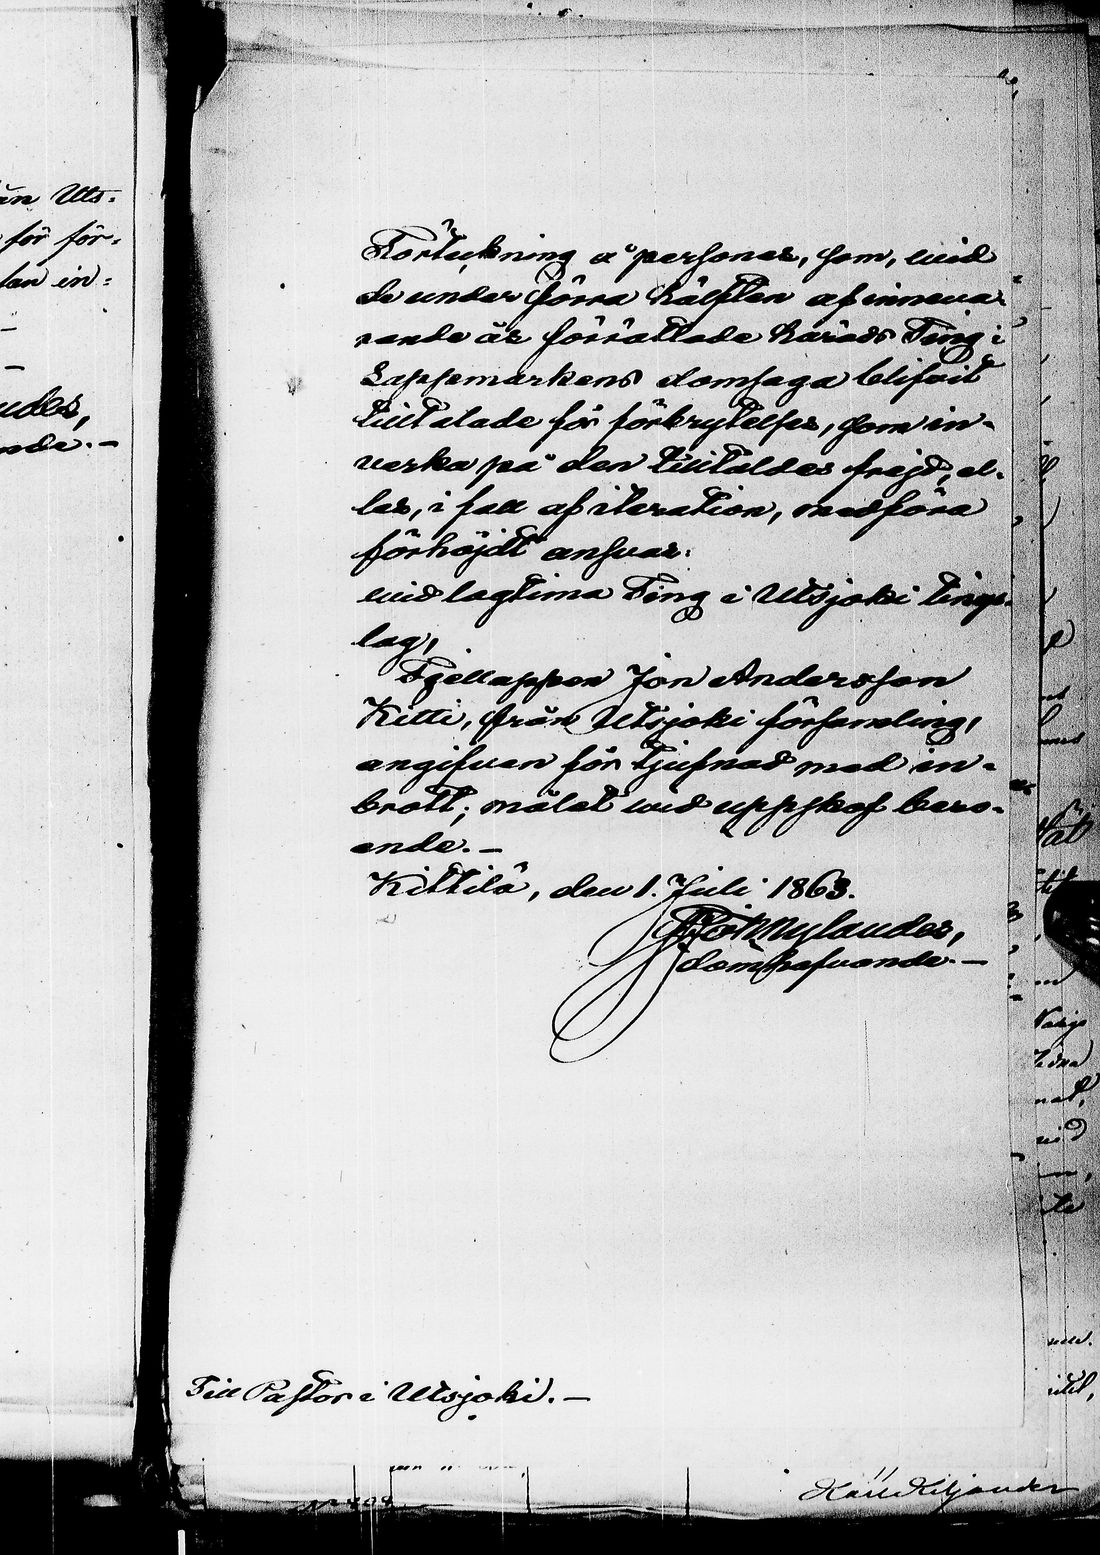 Förteckning å personer, som, wid
de under förra hälften af inneva-
rande år förrättade härads Ting i
Lappmarkens domsaga blifvit
tilltalade för förbrytelser, som in-
verka på den tilltaldes frejd, el-
ler, i fall af iteration, medföra
förhöjdt ansvar:
wid lagtima Ting i Utsjoki tings-
lag,
Fjellappen Jon Andersson
Kitti, från Utsjoki församling,
angifven för tjufnad med in-
brott; målet wid uppskof bero-
ende.—
Kittilä, den 1. Juli 1863.
Nylander,
domhafvande.—
Till Pastor i Utsjoki.—
än Uts-
för för-
tan in-
nde.—
Kiljander